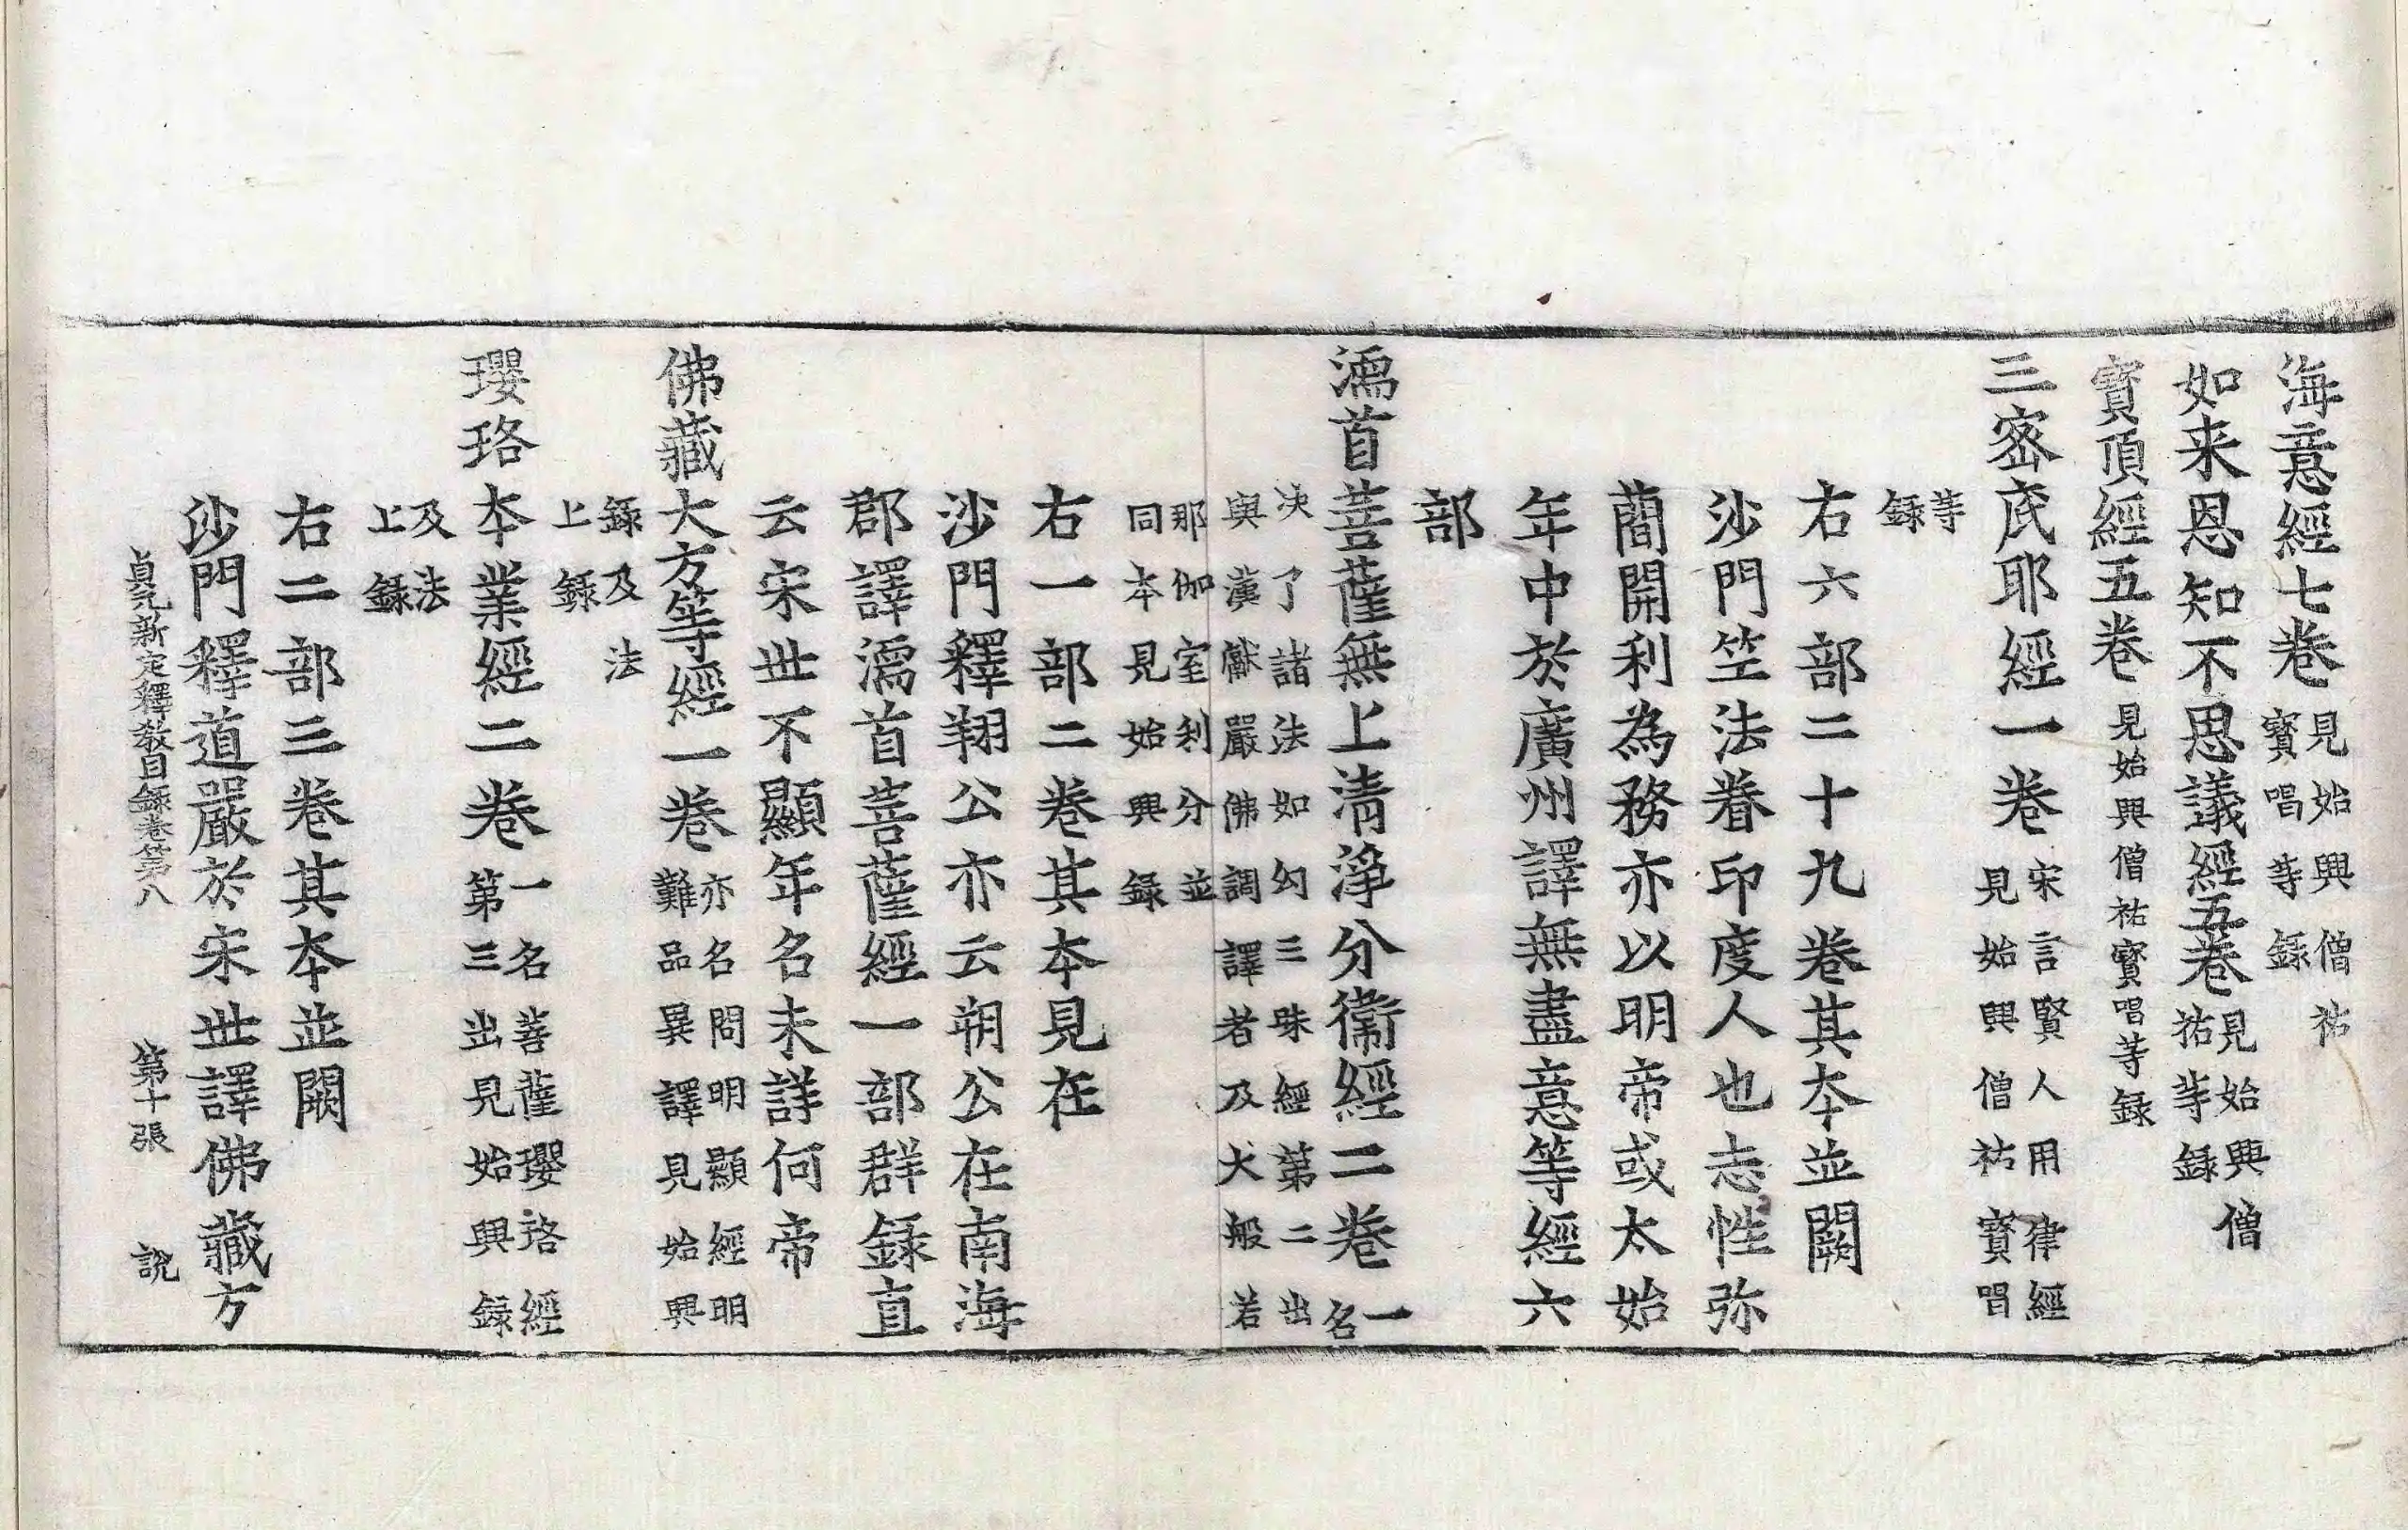 海意經七卷見始興僧祐寳唱等錄
如来恩知不思議經五卷見始興僧祐等錄
寳頂經五卷見始興僧祐寳唱等錄
三宻底耶經一卷宋言賢人用律經見始興僧祐寳唱
等錄
右六部二十九卷其本並闕
沙門竺法眷印度人也志性弥
蕳開利為務亦以明帝或太始
年中於廣州譯無盡意等經六
部
濡首菩薩無上清淨分衛經二卷一名
决了諸法如幻三昧經第二出與漢嚴佛調譯者及大般若
那伽室利分並同本見始興錄
右一部二卷其本見在
沙門釋翔公亦云朔公在南海
郡譯濡首菩薩經一部群錄直
云宋世不顯年名未詳何帝
佛藏大方等經一卷亦名問明顯經明難品異譯見始興
錄及法上錄
瓔珞本業經二卷一名菩薩瓔珞經第三出見始興錄
及法上錄
右二部三卷其本並闕
沙門釋道嚴於宋世譯佛藏方
貞元新定釋教目錄卷第八 第十張 說